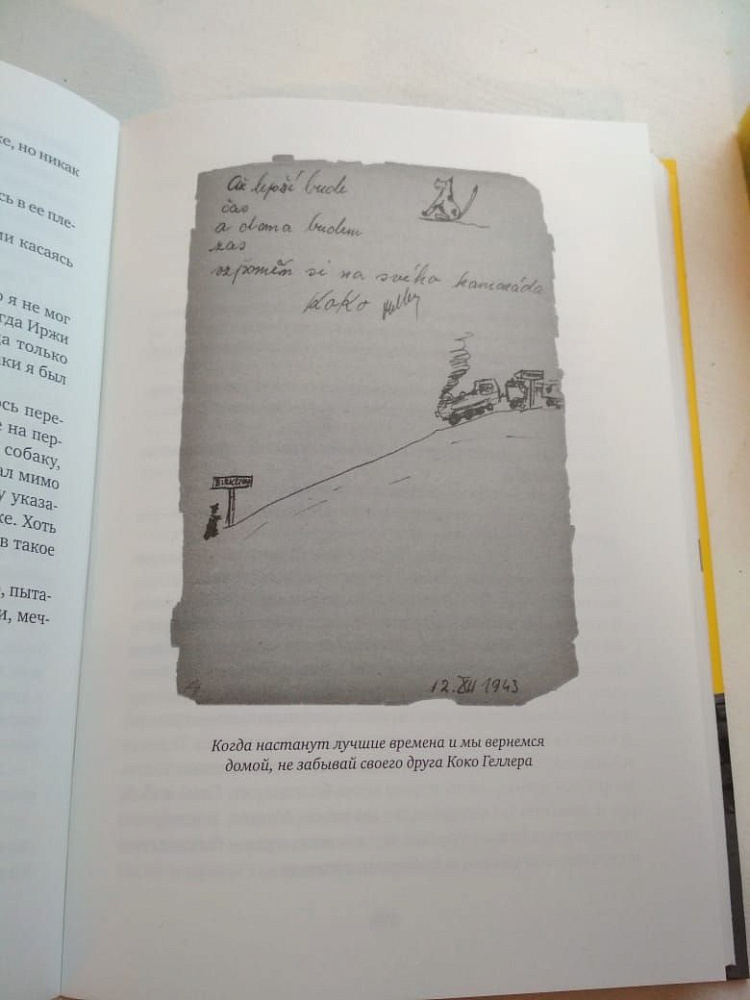 же, но никак
сь в ее пле-
ми касаясь
о я не мог
гда Иржи
а только
ки я был
ось пере-
е на пер-
собаку,
ал мимо
у указа-
же. Хоть
в такое
, пыта-
и, меч-
Až lepší bude
čas
a doma budem
zas
vzpomeň si na svého kamaráda
Koko
12. XII 1943
Когда настанут лучшие времена и мы вернемся
домой, не забывай своего друга Коко Геллера